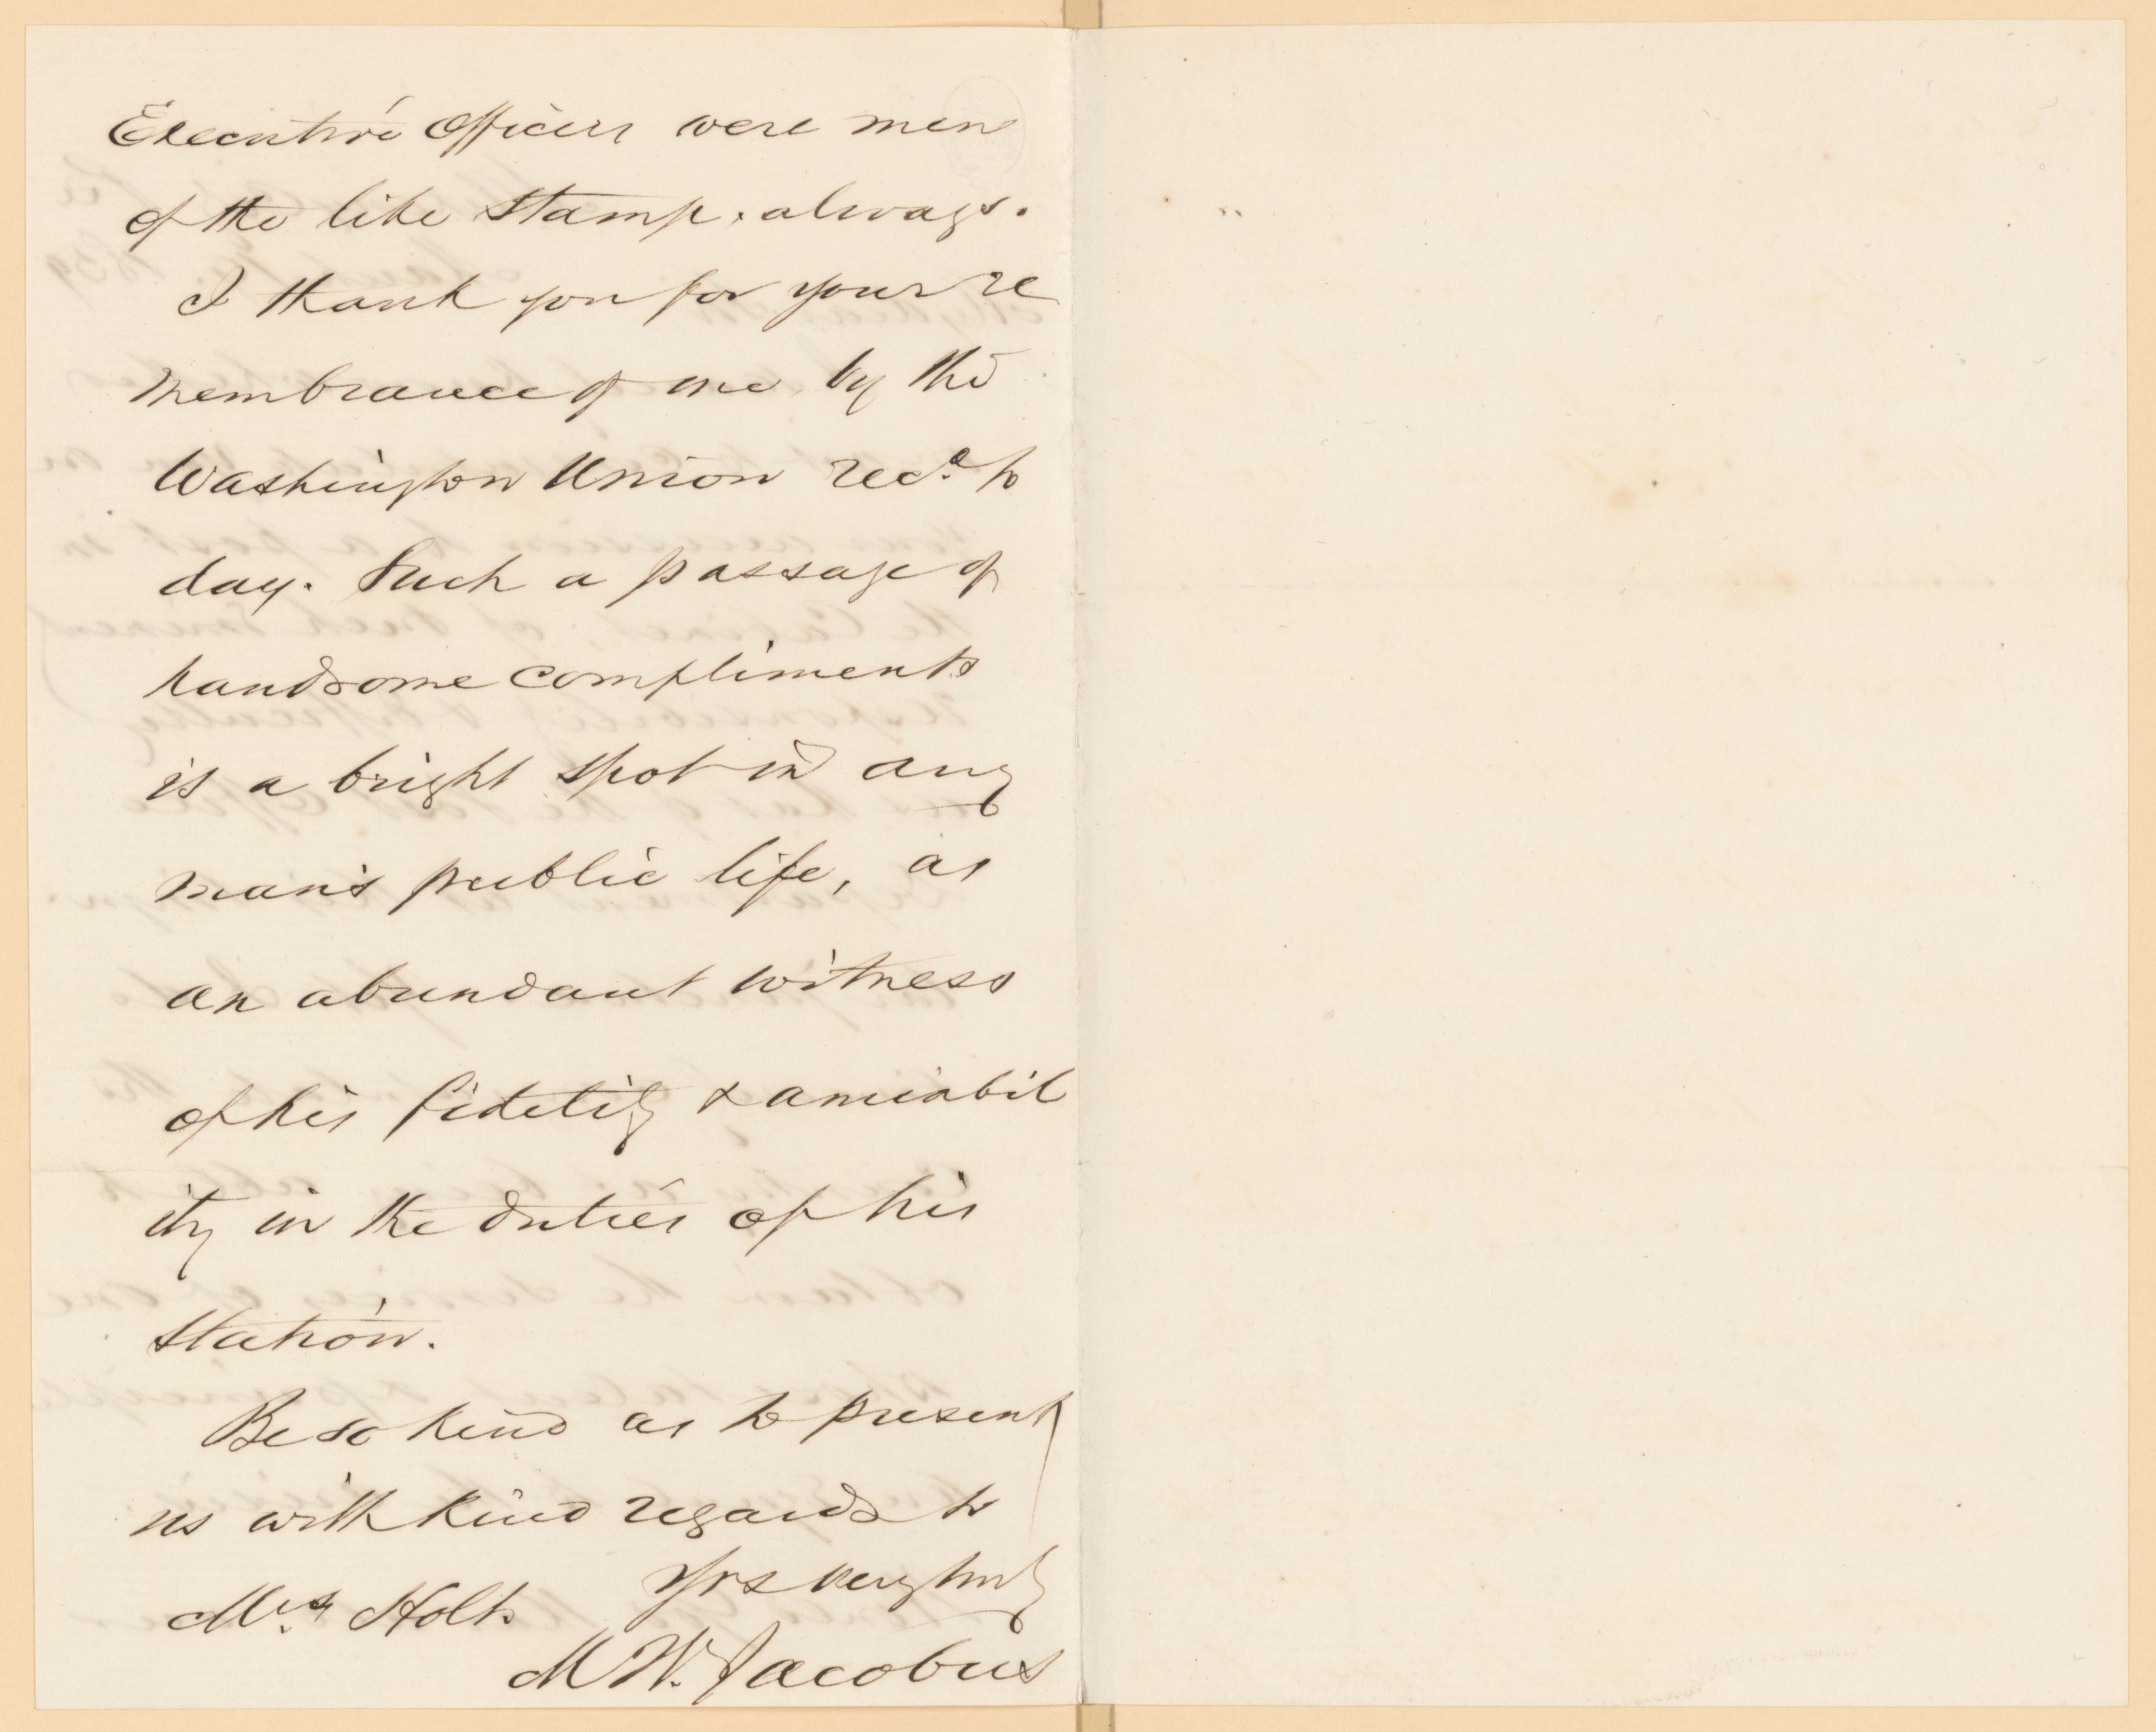 Executive Officers were men
of the like stamp, always.
I thank you for your re
membrance of me by the
Washington Union recd. to
day. Such a passage of
handsome compliments
is a bright spot in any
man's public life, as
an abundant witness
of his fidelity & amiabil
ity in the duties of his
station.
Be so kind as to present
us with kind regards to
Mrs. Holt.
Yrs very truly
M W. Jacobus